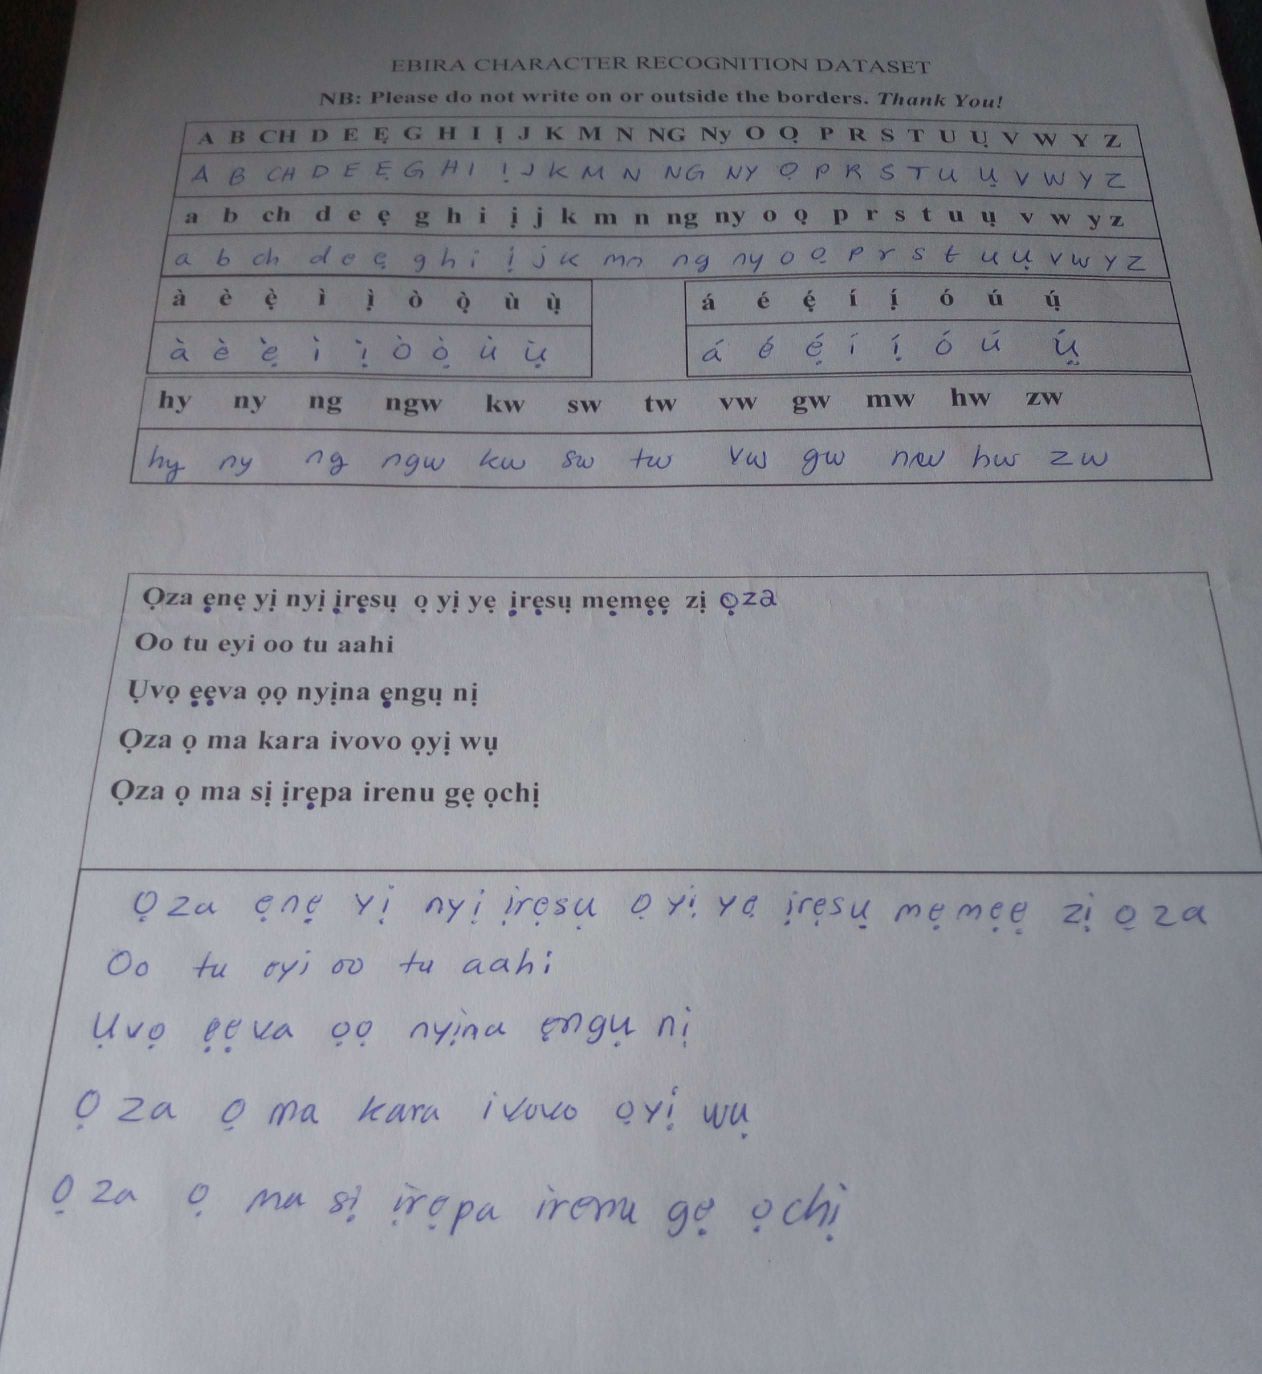 EBIRA CHARACTER RECOGNITION DATASET
NB: Please do not write on or outside the borders. Thank You!
A B CH D E Ẹ G H I Ị J K M N NG Ny O Ọ P R S T U Ụ V W Y Z
A B CH D E Ẹ G H I Ị J K M N NG NY Ọ P R S T U Ụ V W Y Z
a b ch d e ẹ g h i ị j k m n ng ny o ọ p r s t u ụ v w y z
a b ch d e ẹ g h i ị j k m n ng ny o ọ p r s t u ụ v w y z
à è ẹ̀ ì ị̀ ò ọ̀ ù ụ̀ á é ẹ́ í ị́ ó ú ụ́
à è ẹ̀ ì ị̀ ò ọ̀ ù ụ̀ á é ẹ́ í ị́ ó ú ụ́
hy ny ng ngw kw sw tw vw gw mw hw zw
hy ny ng ngw kw sw tw vw gw hw zw
Ọza ẹnẹ yị nyị ịrẹsụ ọ yị yẹ ịrẹsụ mẹmẹẹ zị ọza
Oo tu eyi oo tu aahi
Ụvọ ẹẹva ọọ nyịna ẹngụ nị
Ọza ọ ma kara ivovo ọyị wụ
Ọza ọ ma sị ịrẹpa irenu gẹ ọchị
Ọza ẹnẹ yị nyị ịrẹsụ ọ yị yẹ ịrẹsụ mẹmẹẹ zị ọza
Oo tu eyi oo tu aahi
Ụvọ ẹẹva ọọ nyịna ẹngụ nị
Ọza ọ ma kara ivovo ọyị wụ
Ọza ọ ma sị ịrẹpa irenu gẹ ọchị